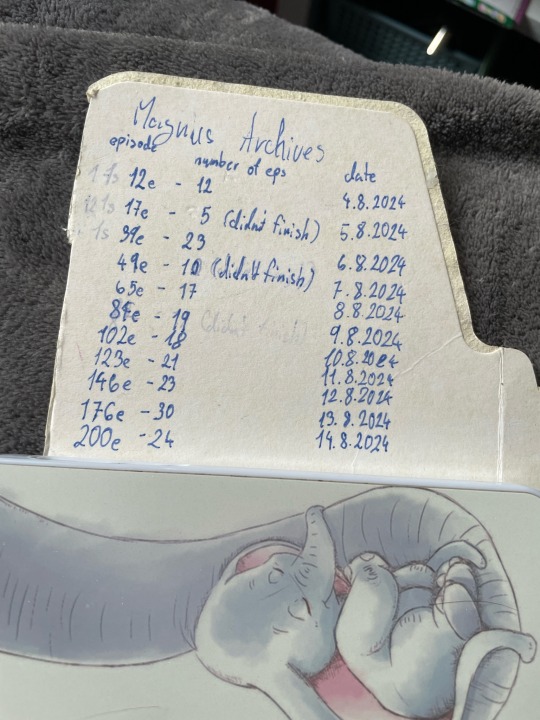 Magnus Archives
episode number of eps date
12e - 12 4.8.2024
17e - 5 (didn't finish) 5.8.2024
39e - 23 6.8.2024
49e - 10 (didn't finish) 7.8.2024
65e - 17 8.8.2024
84e - 19 (didn't finish) 9.8.2024
102e - 18 10.8.2024
123e - 21 11.8.2024
146e - 23 12.8.2024
176e - 30 13.8.2024
200e - 24 14.8.2024